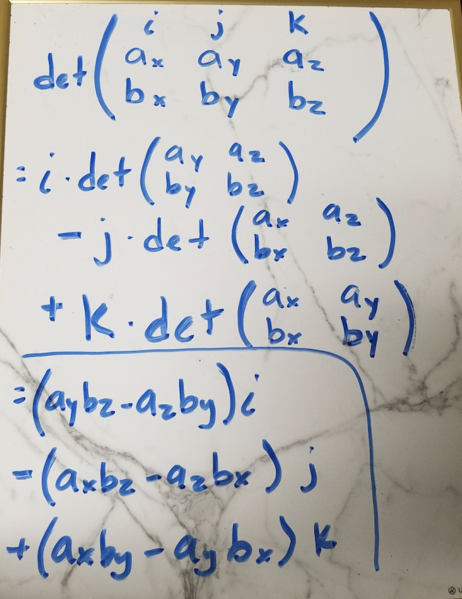 i j k
det( ax ay az )
bx by bz
= i · det( ay az )
by bz
- j · det ( ax az )
bx bz
+ k · det ( ax ay )
bx by
= (aybz - azby) i
- (axbz - azbx) j
+ (axby - aybx) k